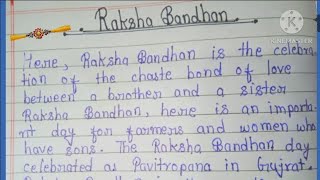 Raksha Bandhan
Here, Raksha Bandhan is the celebra-
tion of the chaste bond of love
between a brother and a sister
Raksha Bandhan, here is an importa-
nt day for formers and women who
have sons. The Raksha Bandhan day
celebrated as Pavitropana in Gujrat.